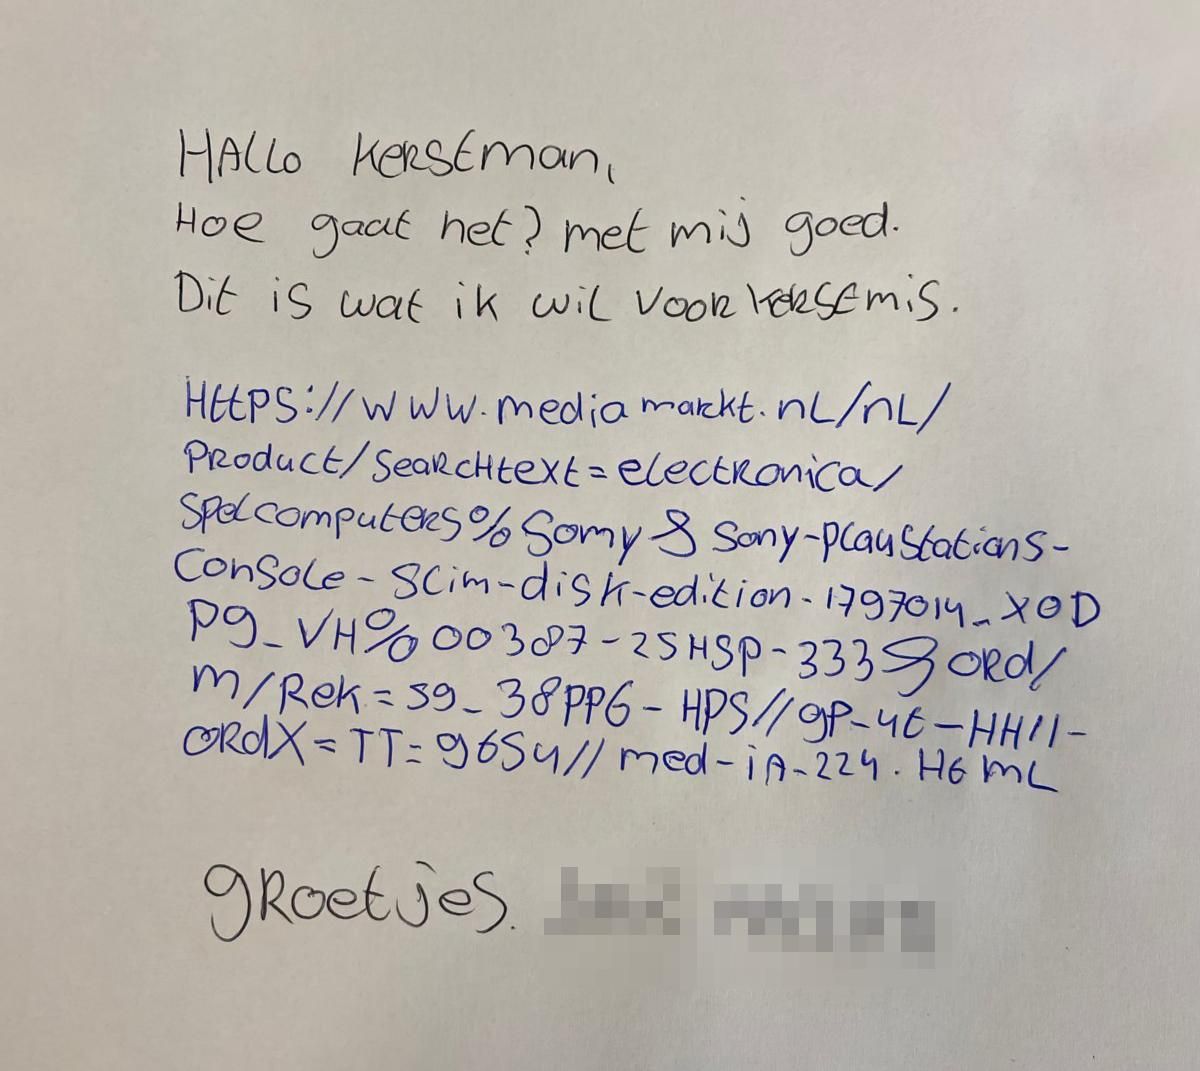 Hallo Kerstman,
Hoe gaat het? met mij goed.
Dit is wat ik wil voor kersemis.
Https://www.mediamarkt.nl/nl/
Product/searchtext=electronica/
Spelcomputers%Somy&Sony-playstations-
Console-Slim-disk-edition-1797014_XOD
pg_VH%00387-25HSP-333&ord/
m/Rek=59_38PPG-HPS//gp-4t-HH11-
ordX=TT=9654//med-ia-224.Html
groetjes.